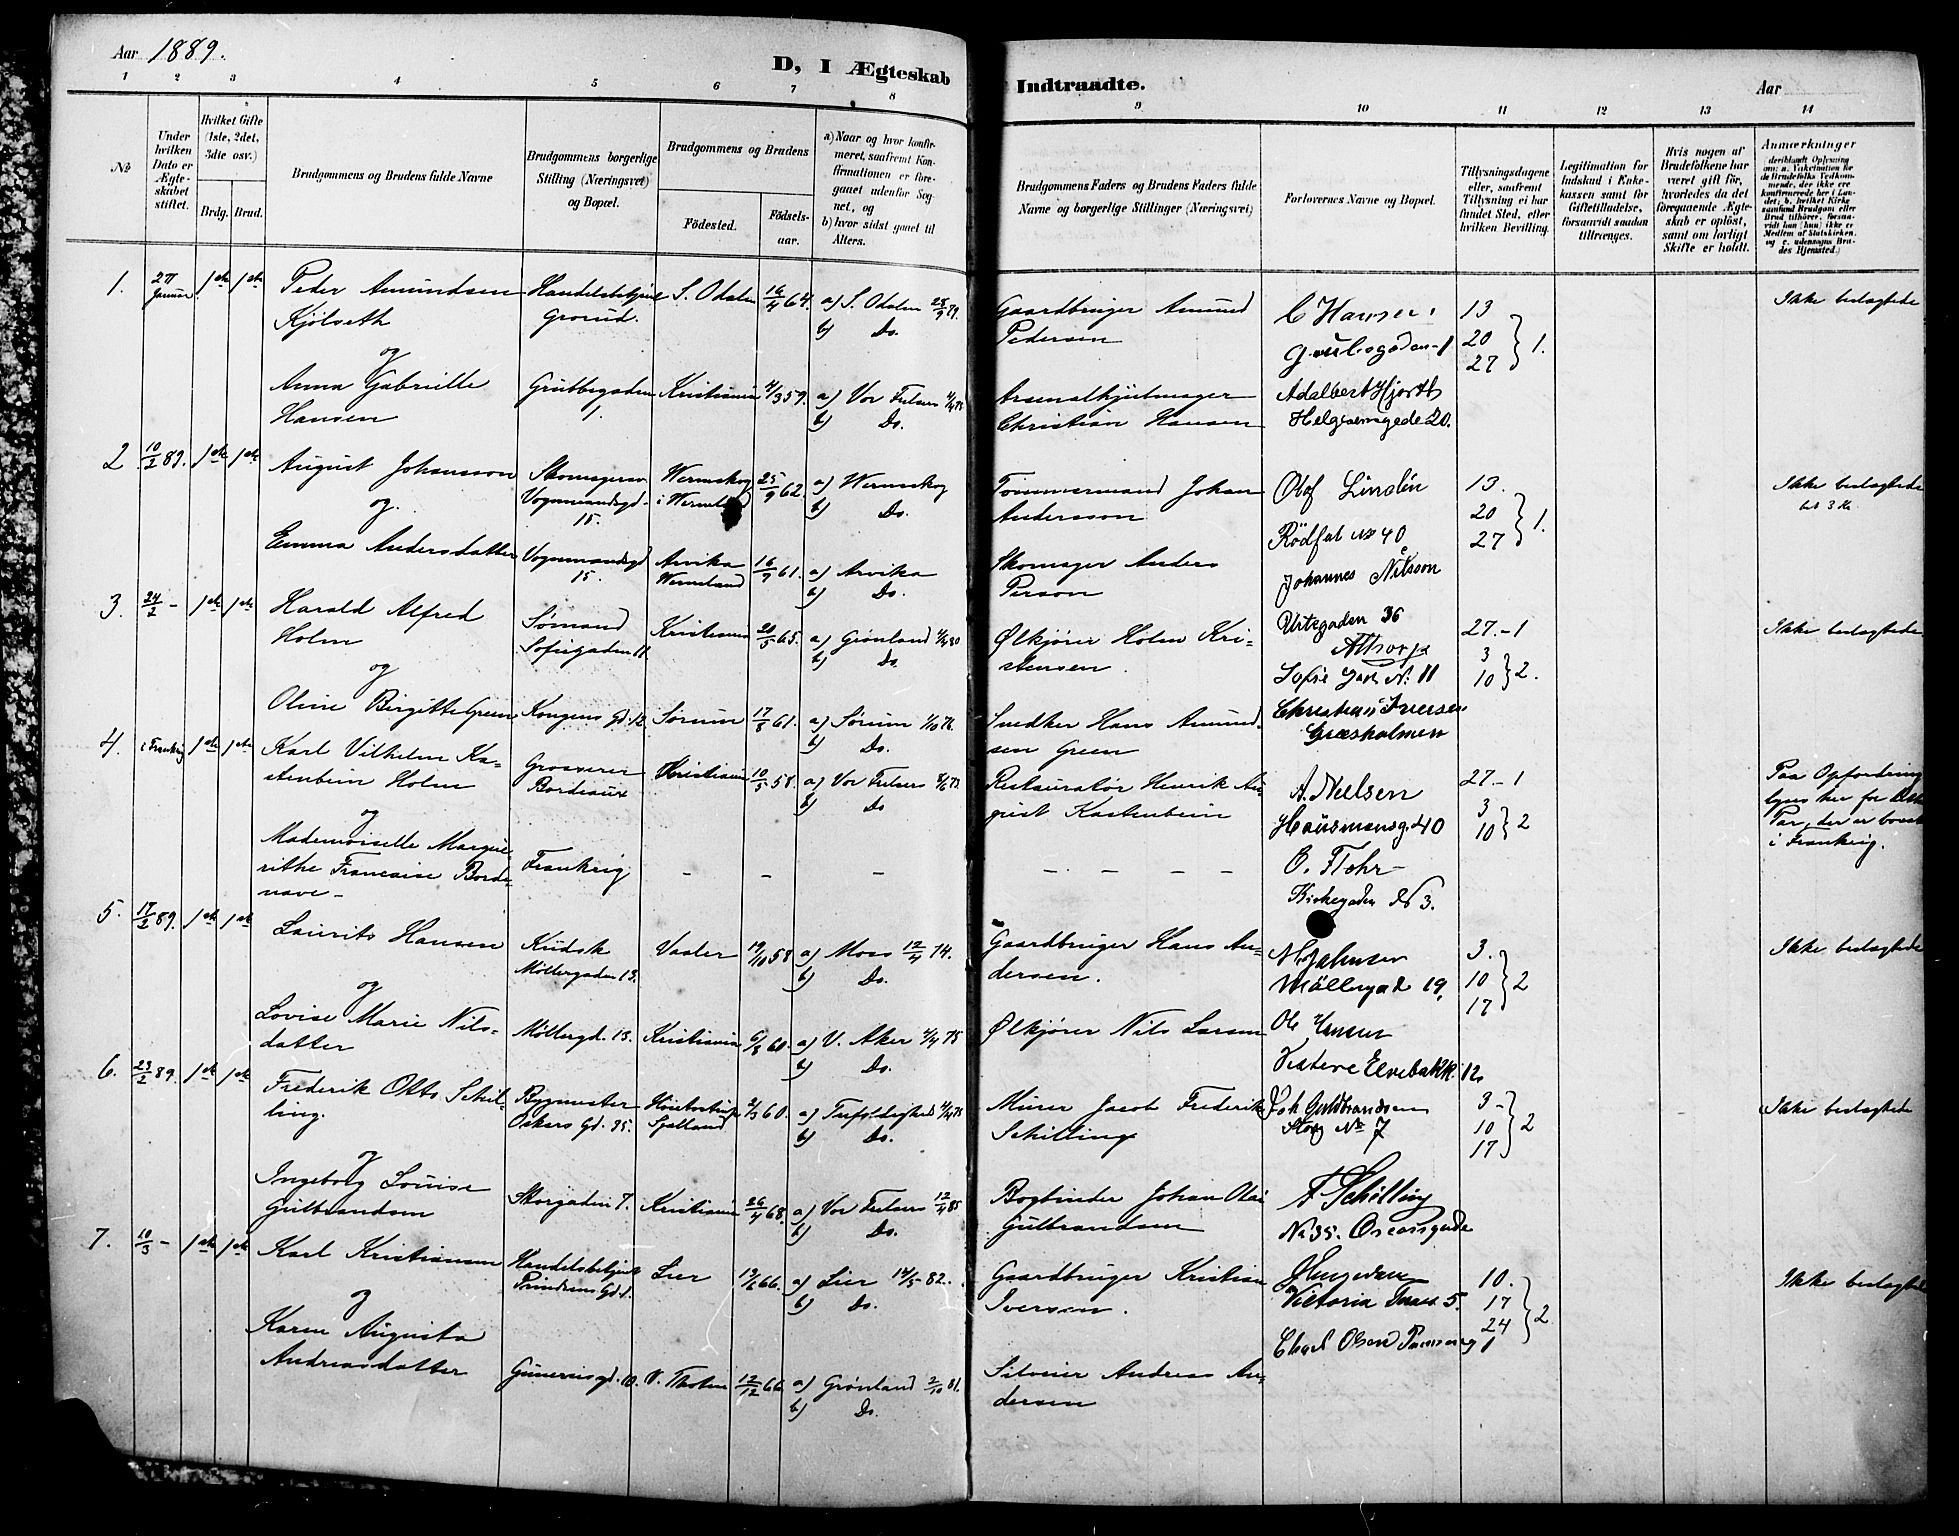 Aar 1889.
D, I Ægteskab Indtraadte.
Aar
1 2 3 4 5 6 7 8 9 10 11 12 13 14
No
Under hvilken Dato er Ægteskabet stiftet.
Hvilket Gifte (1ste, 2det, 3die osv.)
Brdg. Brud.
Brudgommens og Brudens fulde Navne
Brudgommens borgerlige Stilling (Næringsvei) og Bopæl.
Brudgommens og Brudens
Fødested.
Fødselsaar.
a) Naar og hvor konfirmeret, saafremt Konfirmationen er foregaaet udenfor Sognet, og
b) hvor sidst gaaet til Alters.
Brudgommens Faders og Brudens Faders fulde Navne og borgerlige Stillinger (Næringsvei)
Forlovernes Navne og Bopæl.
Tillysningsdagene eller, saafremt Tillysning ei har fundet Sted, efter hvilken Bevilling.
Legitimation for Indskud i Enkekassen samt for Giftetilladelse, forsaavidt saadan tiltrænges.
Hvis nogen af Brudefolkene har været gift før, hvorledes da det foregaaende Ægteskab er opløst, samt om lovligt Skifte er holdt.
Anmærkninger
1. 27 Januar 1ste 1ste Peder Amundsen Kjölseth Handelsbetjent Grorud. S. Odalen 16/4 64. a) S. Odalen 28/9 79. b) Do. Gaardbruger Amund Pedersen C Hansen 13 20 27 } 1. Ikke beslægtede
og
Anna Gabrielle Hansen Grubbegaden 1. Kristiania 4/3 59. a) Vor Frelsers b) Do. Christian Hansen Adalbert Hjorth Helgesensgade 20.
2 10/2 89. 1ste 1ste August Johansson Skomagersv. Vognmandsgd. 15. Wermskog i Wermland 25/9 62. a) Wermskog b) Do. Tømmermand Johan Andersson Olof Lindén Rödfal No 40 13. 20 27 } 1. Ikke beslægtede
og.
Emma Andersdatter Vognmandsgd 15. Arvika Wermland 16/9 61. a) Arvika b) Do. Skomager Anders Person Johannes Nilsson Urtegaden 36
3. 24/2 - 1ste 1ste Harald Alfred Holm Sømand Sofiegaden 11. Kristiania 20/5 65. a) Grønland b) Do. Ølkjører Holm Kristensen. Sofie Gad N: 11 27.-1 3 10 } 2. Ikke beslægtede
og
Oline Birgitte Green Kongens Gd. 12 Sørum 17/8 61. a) Sørum b) Do. Snedker Hans Amundsen Green Christian Iversen Græsholmen
4. i Frankrig 1ste 1ste Karl Vilhelm Kastenbein Holm Grosserer Bordeaux Kristiania 10/5 58. a) Vor Frelsers b) Do Restauratør Henrik August Kastenbein A. Nielsen Hausmansg. 40 27.-1 3 10 } 2 Paa Opfordring lyses her for dette Par, der er bosat i Frankrig.
og
Mademoiselle Marguerithe Francaise Bordenave - Frankrig - - - - - - - O. Flohr Kirkegaden No 3.
5. 17/2 89. 1ste 1ste Laurits Hansen Kudsk Møllergaden 13. Vaaler 19/10 58 a) Moss 12/4 74. b) Do. Gaardbruger Hans Andersen. Möllergad 19, 3. 10 17 } 2 Ikke beslægtede
og
Lovise Marie Nilsdatter Møllergd. 13. Kristiania 6/8 60. a) V. Aker 4/4 75 b) Do. Ølkjører Nils Larsen Ole Hansen Vestere Elvebakk. 12.
6. 23/2 89. 1ste 1ste Frederik Otto Schilling. Bygmester Oskars Gd. 35. Sjælland 2/3 60. a) b) Do. Murer Jacob Frederik Schilling Joh Guldbrandsen Storg No 7 3- 10 17 } 2 Ikke beslægtede
og
Ingeborg Louise Gulbrandsen Storgaden 7. Kristiania 26/4 68. a) Vor Frelsers 12/4 85 b) Do. Bogbinder Johan Olai Gulbrandsen F Schilling No 35. Oscarsgade
7. 10/3 - 1ste 1ste Karl Kristiansen Handelsbetjent Prindsens Gd. Lier 66. a) Lier 14/5 82. b) Do. Gaardbruger Kristian Iversen. Victoria Terr. 5. 10. 17 24 } 2. Ikke beslægtede
og
Karen Augusta Andreasdatter V. Thoten 12/12 66 a) Grønland 2/10 81. b) Do. Andreas Andersen